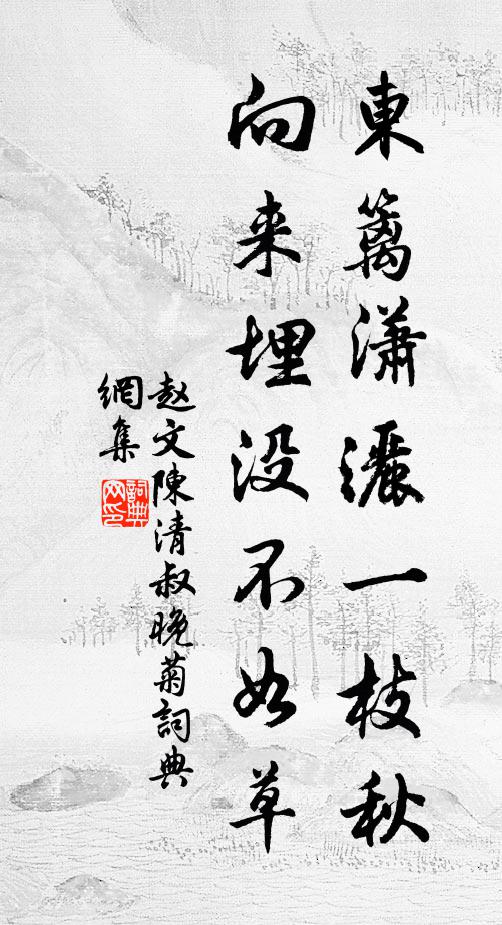 東籬瀟灑一枝秋
向来埋没不如草
赵文陳清叔晚菊詞典
網集
詞典網印